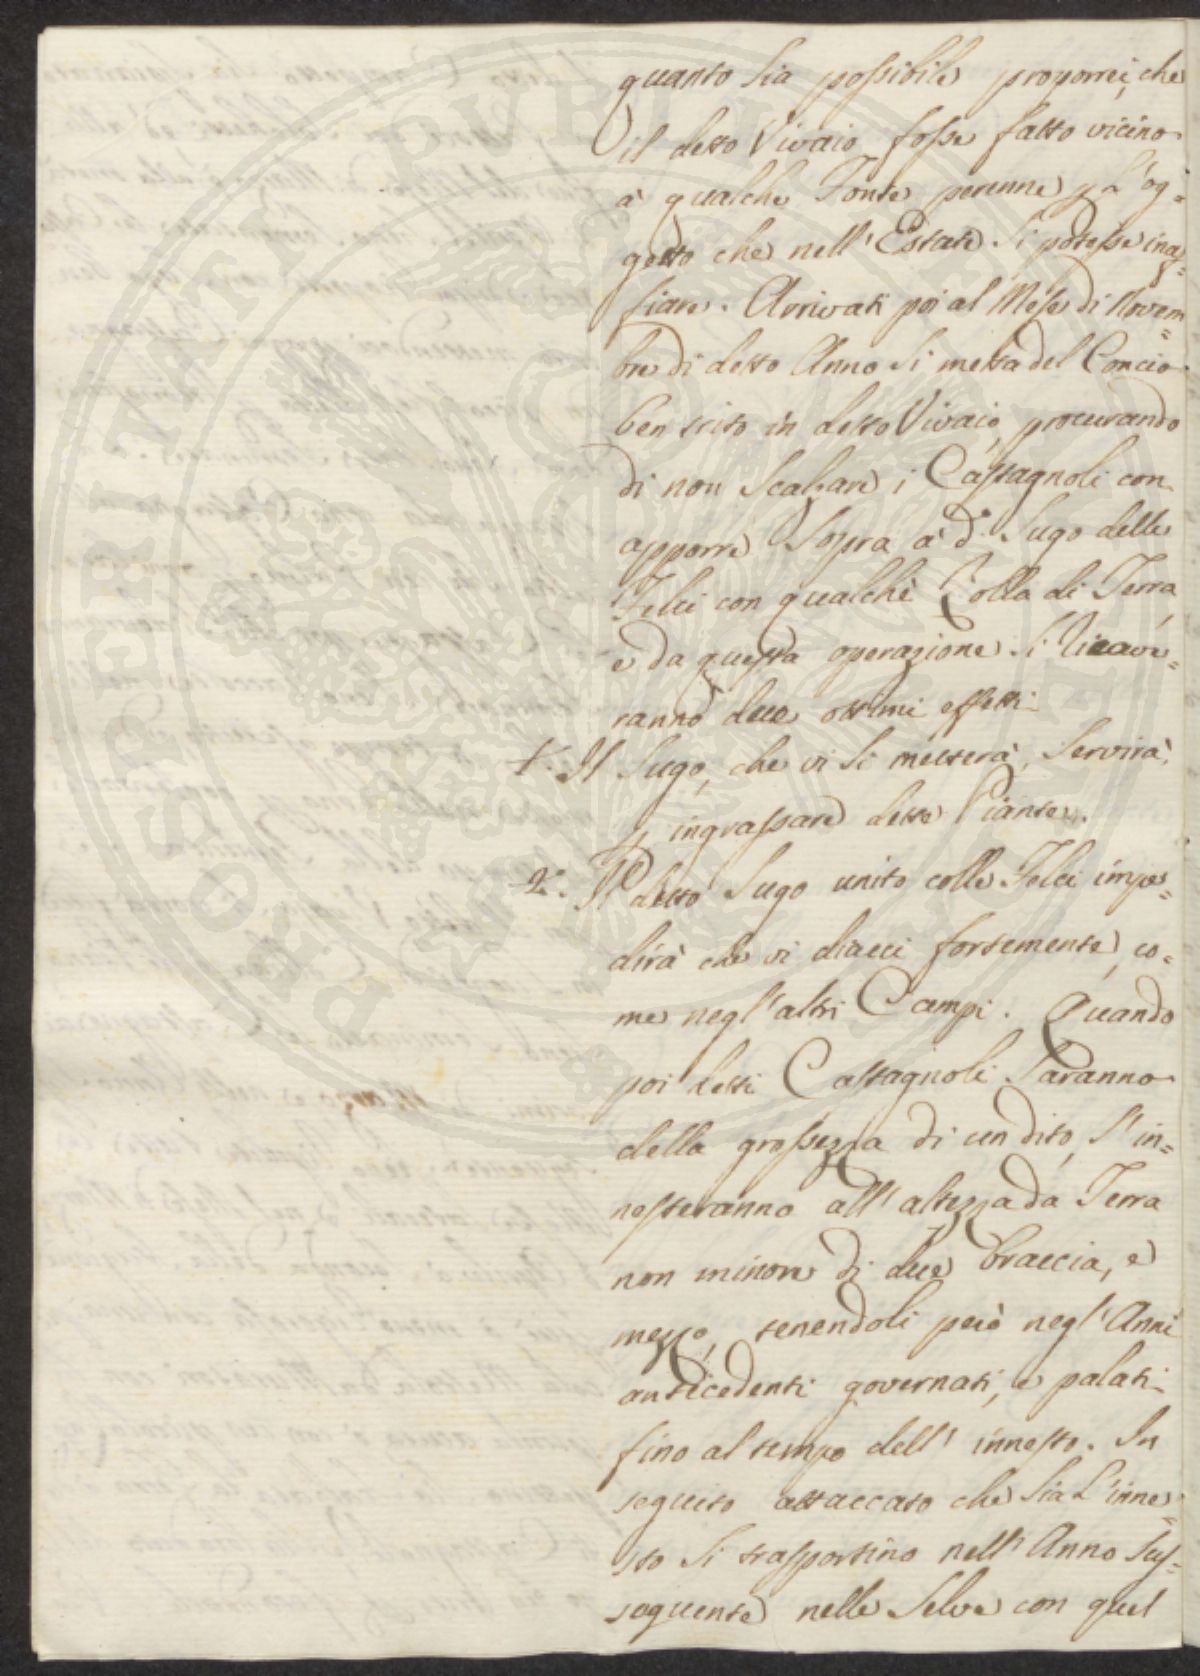 quanto sia possibile proporrei, che
il detto Vivaio fosse fatto vicino
à qualche Fonte perenne p L'og=
getto che nell'Estate si potesse inaf=
fiare. Arrivati poi al Mese di Novem=
bre di detto Anno si metta del Concio
ben trito in detto Vivaio, procurando
di non Scalzare i Castagnoli con
apporre sopra à d.° Sugo delle
Felci con qualchè Zolla di Terra,
e da questa operazione si ricave=
ranno due ottimi effetti.
1.° Il Sugo, che vi si metterà, servirà
p ingrassare dette Piante.
2.° Il detto Sugo unito colle Felci impe=
dirà che vi diacci fortemente, co=
me negl'altri Campi. Quando
poi detti Castagnoli saranno
della grossezza di un dito, s'in=
nesteranno all'altezza da Terra
non minore di due braccia, e
mezzo, tenendoli però negl'Anni
antecedenti governati, e palati
fino al tempo dell'innesto. In
seguito attaccato che sia L'inne=
sto si trasportino nell'Anno sus=
seguente nelle Selve con quel
PROSPERITATI PUBLICAE